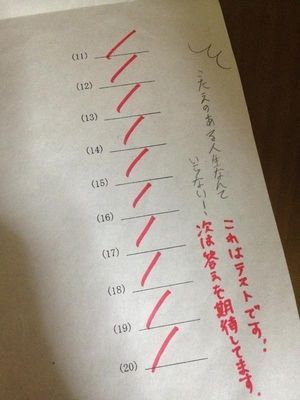 (11)
(12)
(13)
(14)
(15)
(16)
(17)
(18)
(19)
(20)
こたえのある人生なんて
いらない!
これはテストです!
次は答えを期待してます。